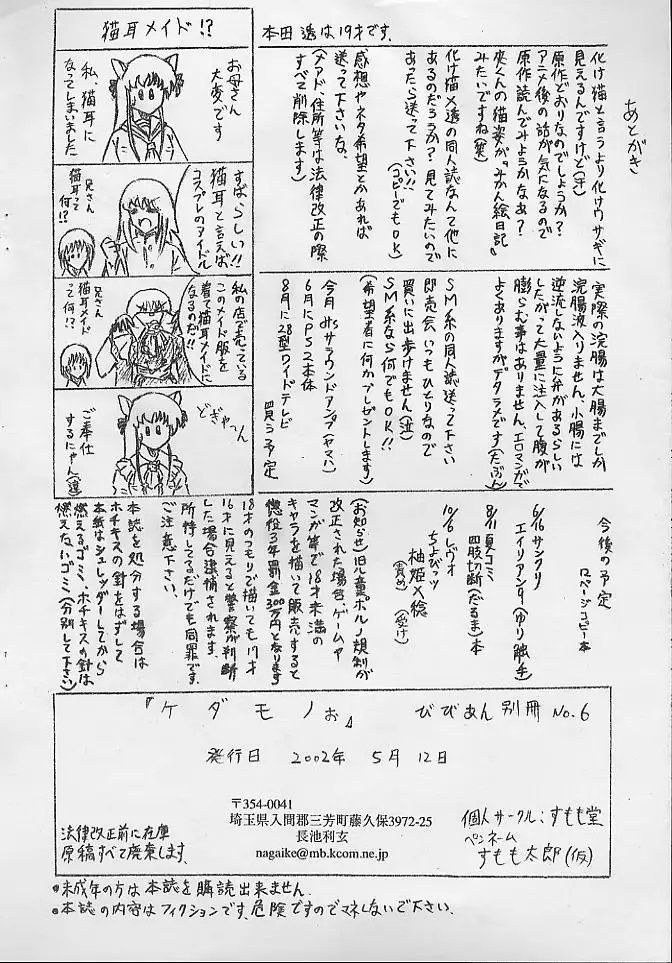 あとがき
化け猫と言うより化けウサギに
見えるんですけど(汗)
原作どおりなのでしょうか?
アニメ後の話が気になるので
原作読んでみようかなぁ?
夾くんの猫姿が。みかん絵日記〟
みたいですね(笑)
化け猫×透の同人誌なんて他に
あるのだろうか?見てみたいので
あったら送って下さい!!
(コピーでもOK)
感想やネタ希望とかあれば
送って下さいな。
(メアド、住所等は法律改正の際
すべて削除します)
本田 透は19才です。
猫耳メイド!?
お母さん
大変です
私、猫耳に
なってしまいました
すばらしい!!
猫耳と言えば
コスプレのアイドル
兄さん
猫耳って
何!?
私の店で売っている
このメイド服を
着て猫耳メイドに
なるのだ!!
兄さん
猫耳メイド
って何!?
どぎゃーん
ご奉仕
するにゃん(違)
実際の浣腸は大腸までしか
浣腸液入りません。小腸には
逆流しないように弁があるらしい
したがって大量に注入して腹が
膨らむ事はありません、エロマンガで
よくありますがデタラメです(たぶん)
SM系の同人誌送って下さい
即売会いつもひとりなので
買いに出歩けません(泣)
SM系なら何でもOK!!
(希望者に何かプレゼントします)
今月 みサラウンドアンプ(ヤマハ)
6月にPS2本体
8月に28型ワイドテレビ
買う予定
今後の予定
ロページコピー本
6/16サンクリ
エイリアン9(ゆり触手)
8/11夏コミ
四肢切断(だるま)本
10/6レヴォ
ちょびっツ
柚姫×稔
(責め) (受け)
(お知らせ)旧児童ポルノ規制が
改正された場合、ゲームや
マンガ等で18才未満の
キャラを描いて販売すると
懲役3年罰金300万円となります
18才のつもりで描いても17才
16才に見えると警察が判断
した場合逮捕されます。
所持してるだけでも同罪です。
ご注意下さい。
本誌を処分する場合は
ホチキスの針をはずして
本紙はシュレッダーしてから
燃えるゴミ、ホチキスの針は
燃えないゴミ(分別して下さい)
『ケダモノぉ』 びびあん別冊 No.6
発行日 2002年 5月 12日
〒354-0041
埼玉県入間郡三芳町藤久保3972-25
長池利玄
nagaike@mb.kcom.ne.jp
法律改正前に在庫
原稿すべて廃棄します。
個人サークル:すもも堂
ペンネーム
すもも太郎(仮)
●未成年の方は本誌を購読出来ません。
●本誌の内容はフィクションです。危険ですのでマネしないで下さい。